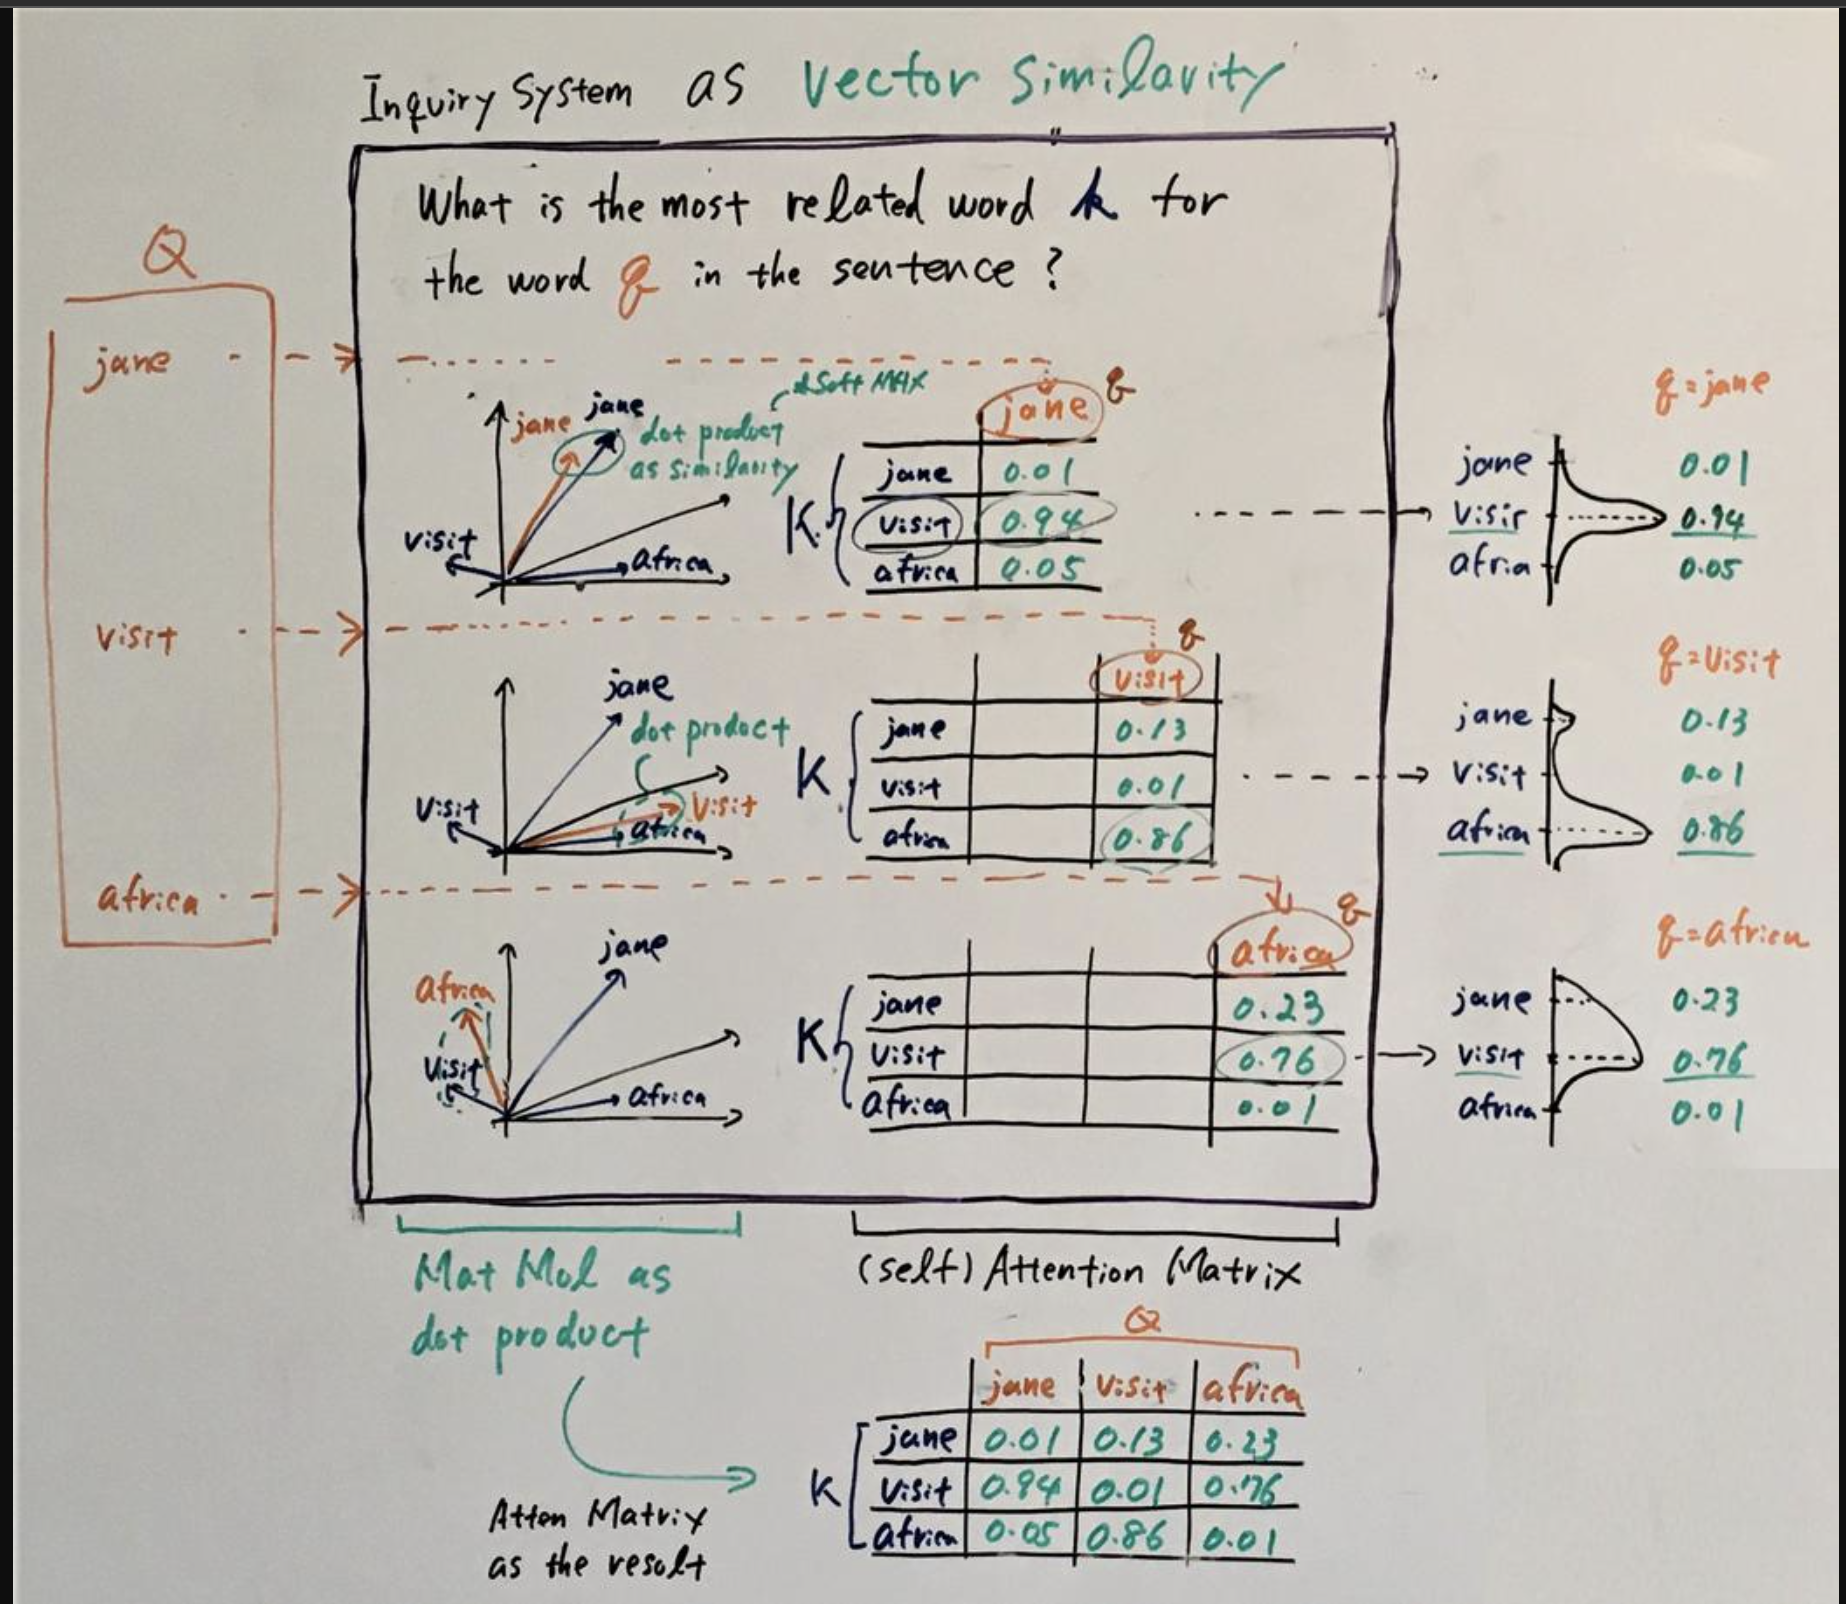 Inquiry System as Vector Similarity
What is the most related word k for
the word q in the sentence?
Q
jane
visit
africa
jane
jane
dot product
as similarity
& Soft MAX
visit
africa
q
jane
K
jane 0.01
visit 0.94
africa 0.05
q=jane
jane 0.01
visit 0.94
afria 0.05
jane
dot product
visit
visit
africa
q
visit
K
jane 0.13
visit 0.01
africa 0.86
q=visit
jane 0.13
visit 0.01
africa 0.86
africa
jane
visit
africa
q
africa
K
jane 0.23
visit 0.76
africa 0.01
q=africa
jane 0.23
visit 0.76
africa 0.01
Mat Mul as
dot product
(self) Attention Matrix
Atten Matrix
as the result
Q
jane visit africa
K
jane 0.01 0.13 0.23
visit 0.94 0.01 0.76
africa 0.05 0.86 0.01